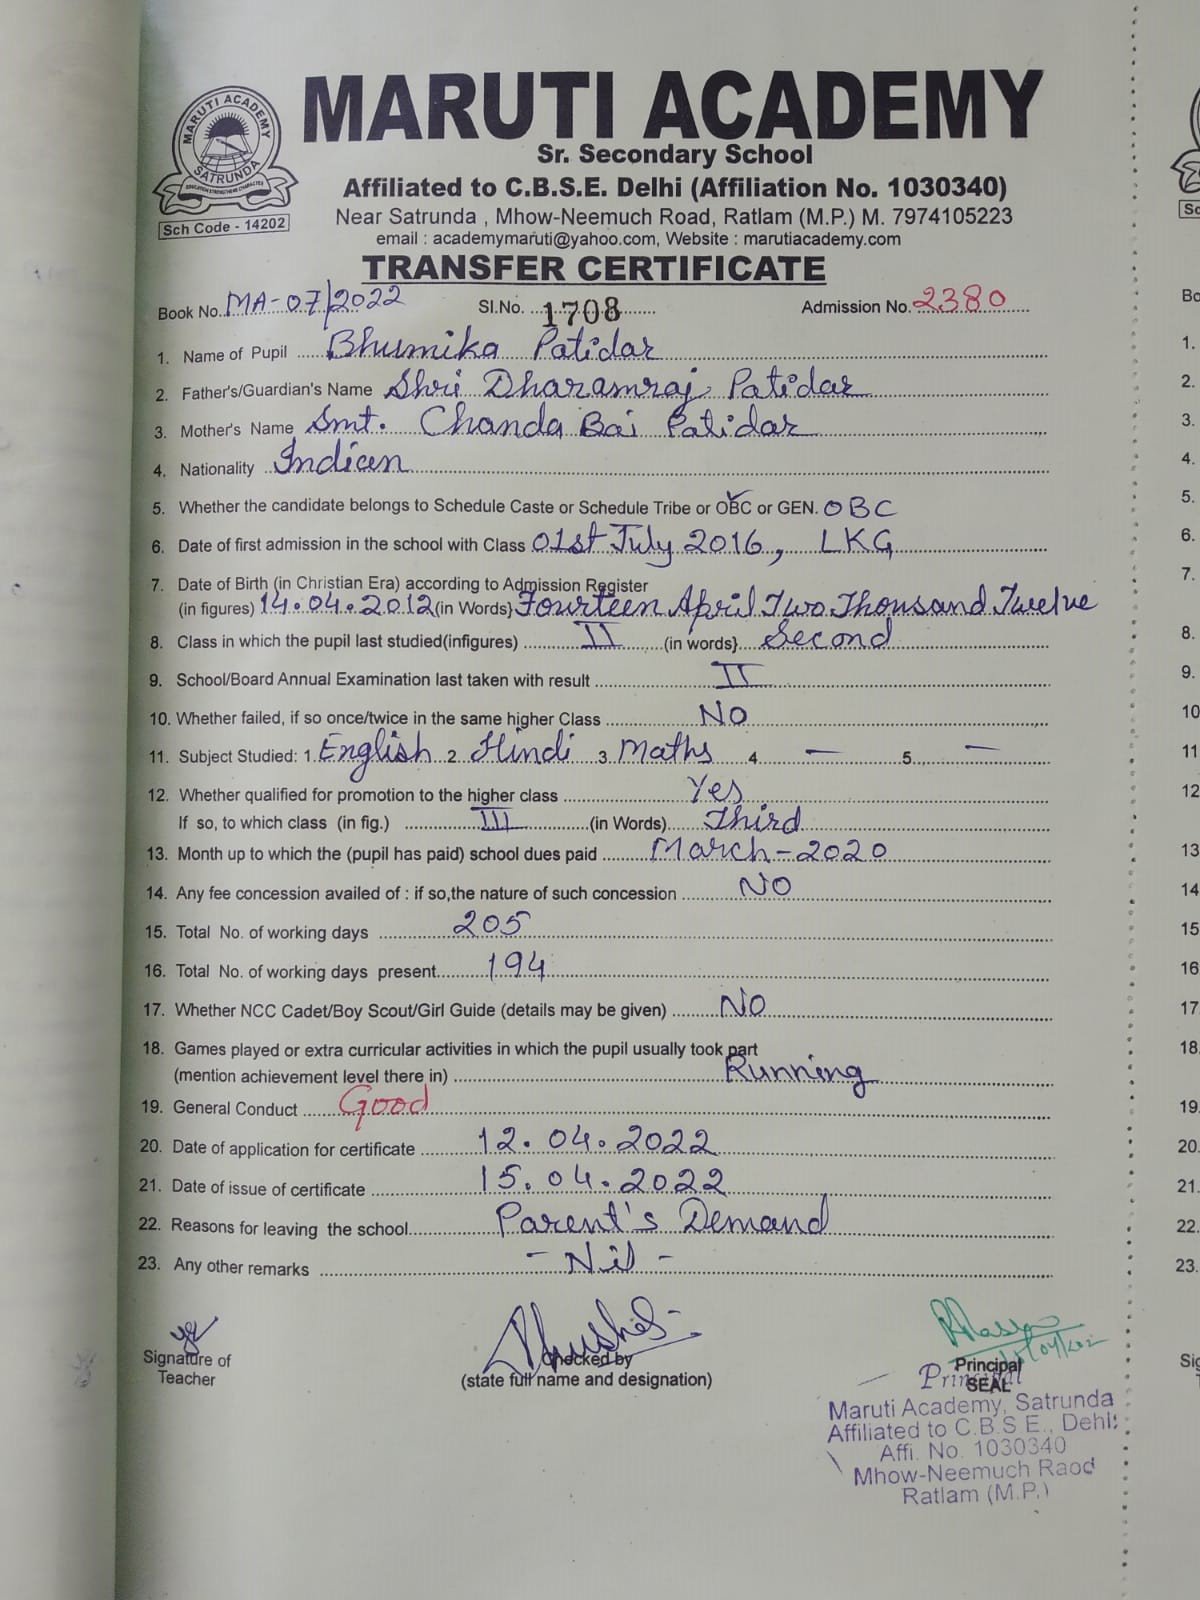 MARUTI ACADEMY
SATRUNDA
EDUCATION STRENGTHENS CHARACTER
Sch Code - 14202
MARUTI ACADEMY
Sr. Secondary School
Affiliated to C.B.S.E. Delhi (Affiliation No. 1030340)
Near Satrunda , Mhow-Neemuch Road, Ratlam (M.P.) M. 7974105223
email : academymaruti@yahoo.com, Website : marutiacademy.com
TRANSFER CERTIFICATE
Book No. MA-07/2022 Sl.No. 1708 Admission No. 2380
1. Name of Pupil Bhumika Patidar
2. Father's/Guardian's Name Shri Dharamraj Patidar
3. Mother's Name Smt. Chanda Bai Patidar
4. Nationality Indian
5. Whether the candidate belongs to Schedule Caste or Schedule Tribe or OBC or GEN. OBC
6. Date of first admission in the school with Class 01st July 2016, LKG
7. Date of Birth (in Christian Era) according to Admission Register
(in figures) 14.04.2012 (in Words} Fourteen April Two Thousand Twelve
8. Class in which the pupil last studied(infigures) II (in words} Second
9. School/Board Annual Examination last taken with result II
10. Whether failed, if so once/twice in the same higher Class No
11. Subject Studied: 1. English 2. Hindi 3. Maths 4. — 5. —
12. Whether qualified for promotion to the higher class Yes
If so, to which class (in fig.) III (in Words) Third
13. Month up to which the (pupil has paid) school dues paid March-2020
14. Any fee concession availed of : if so,the nature of such concession NO
15. Total No. of working days 205
16. Total No. of working days present 194
17. Whether NCC Cadet/Boy Scout/Girl Guide (details may be given) NO
18. Games played or extra curricular activities in which the pupil usually took part
(mention achievement level there in) Running
19. General Conduct Good
20. Date of application for certificate 12.04.2022
21. Date of issue of certificate 15.04.2022
22. Reasons for leaving the school Parent's Demand
23. Any other remarks - Nil -
Signature of
Teacher
Checked by
(state full name and designation)
Principal
SEAL
Principal
Maruti Academy, Satrunda
Affiliated to C.B.S E., Dehli
Affi. No. 1030340
Mhow-Neemuch Raod
Ratlam (M.P.)
Sc
Bo
1.
2.
3.
4.
5.
6.
7.
8.
9.
10
11
12
13
14
15
16
17.
18.
19.
20.
21.
22.
23.
Sig